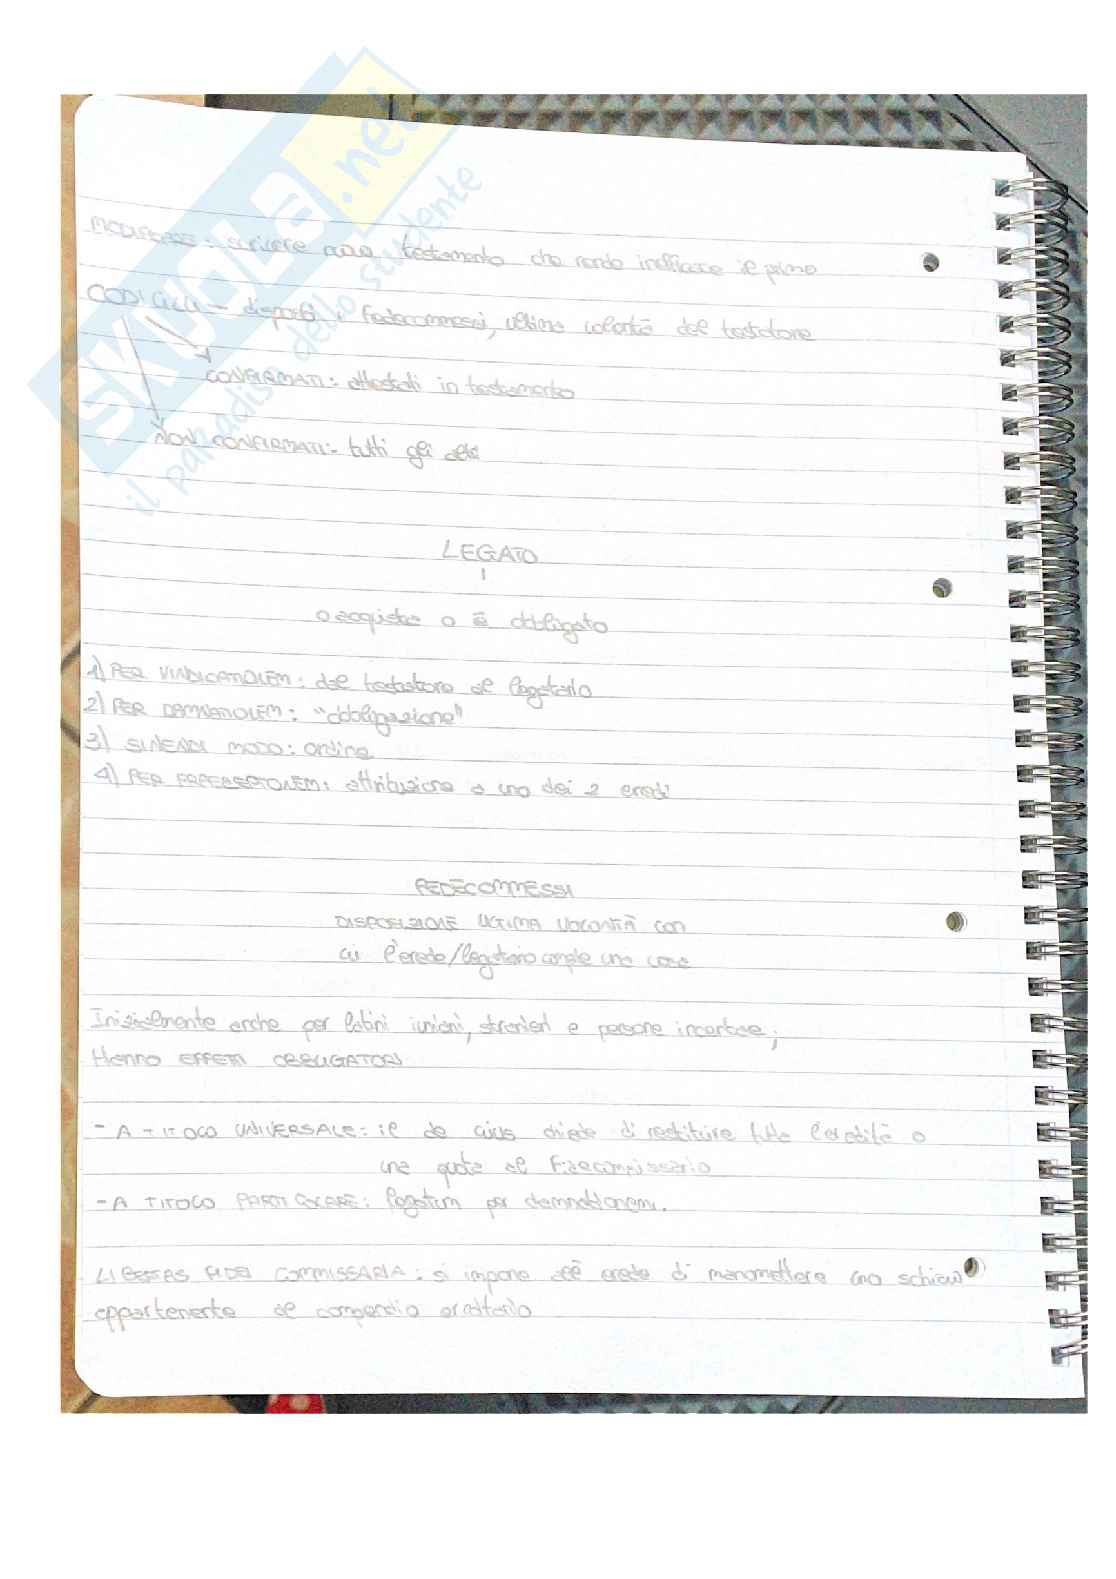 SKUOLA.net
il paradiso dello studente
MODIFICARE: scrivere nuovo testamento che rende inefficace il primo
CODICILLI - disposti i fedecommessi, ultima volontà del testatore
CONFIRMATI: attestati in testamento
NON CONFIRMATI: tutti gli altri
LEGATO
o acquista o è obbligato
1) PER VINDICATIOLEM: dal testatore al legatario
2) PER DAMNATIOLEM: "obbligazione"
3) SINENDI MODO: ordine
4) PER PRAECEPTIONEM: attribuzione a uno dei 2 eredi
FEDECOMMESSI
DISPOSIZIONE ULTIMA VOLONTÀ con
cui l'erede/legatario compie una cosa
Inizialmente anche per latini iuniani, stranieri e persone incertae;
Hanno EFFETTI OBBLIGATORI
- A TITOLO UNIVERSALE: il de cuius chiede di restituire tutta l'eredità o
una quota al fidecommissario
- A TITOLO PARTICOLARE: legatum per damnationem.
LIBERTAS FIDEI COMMISSARIA: si impone all'erede di manomettere uno schiavo
appartenente al compendio ereditario